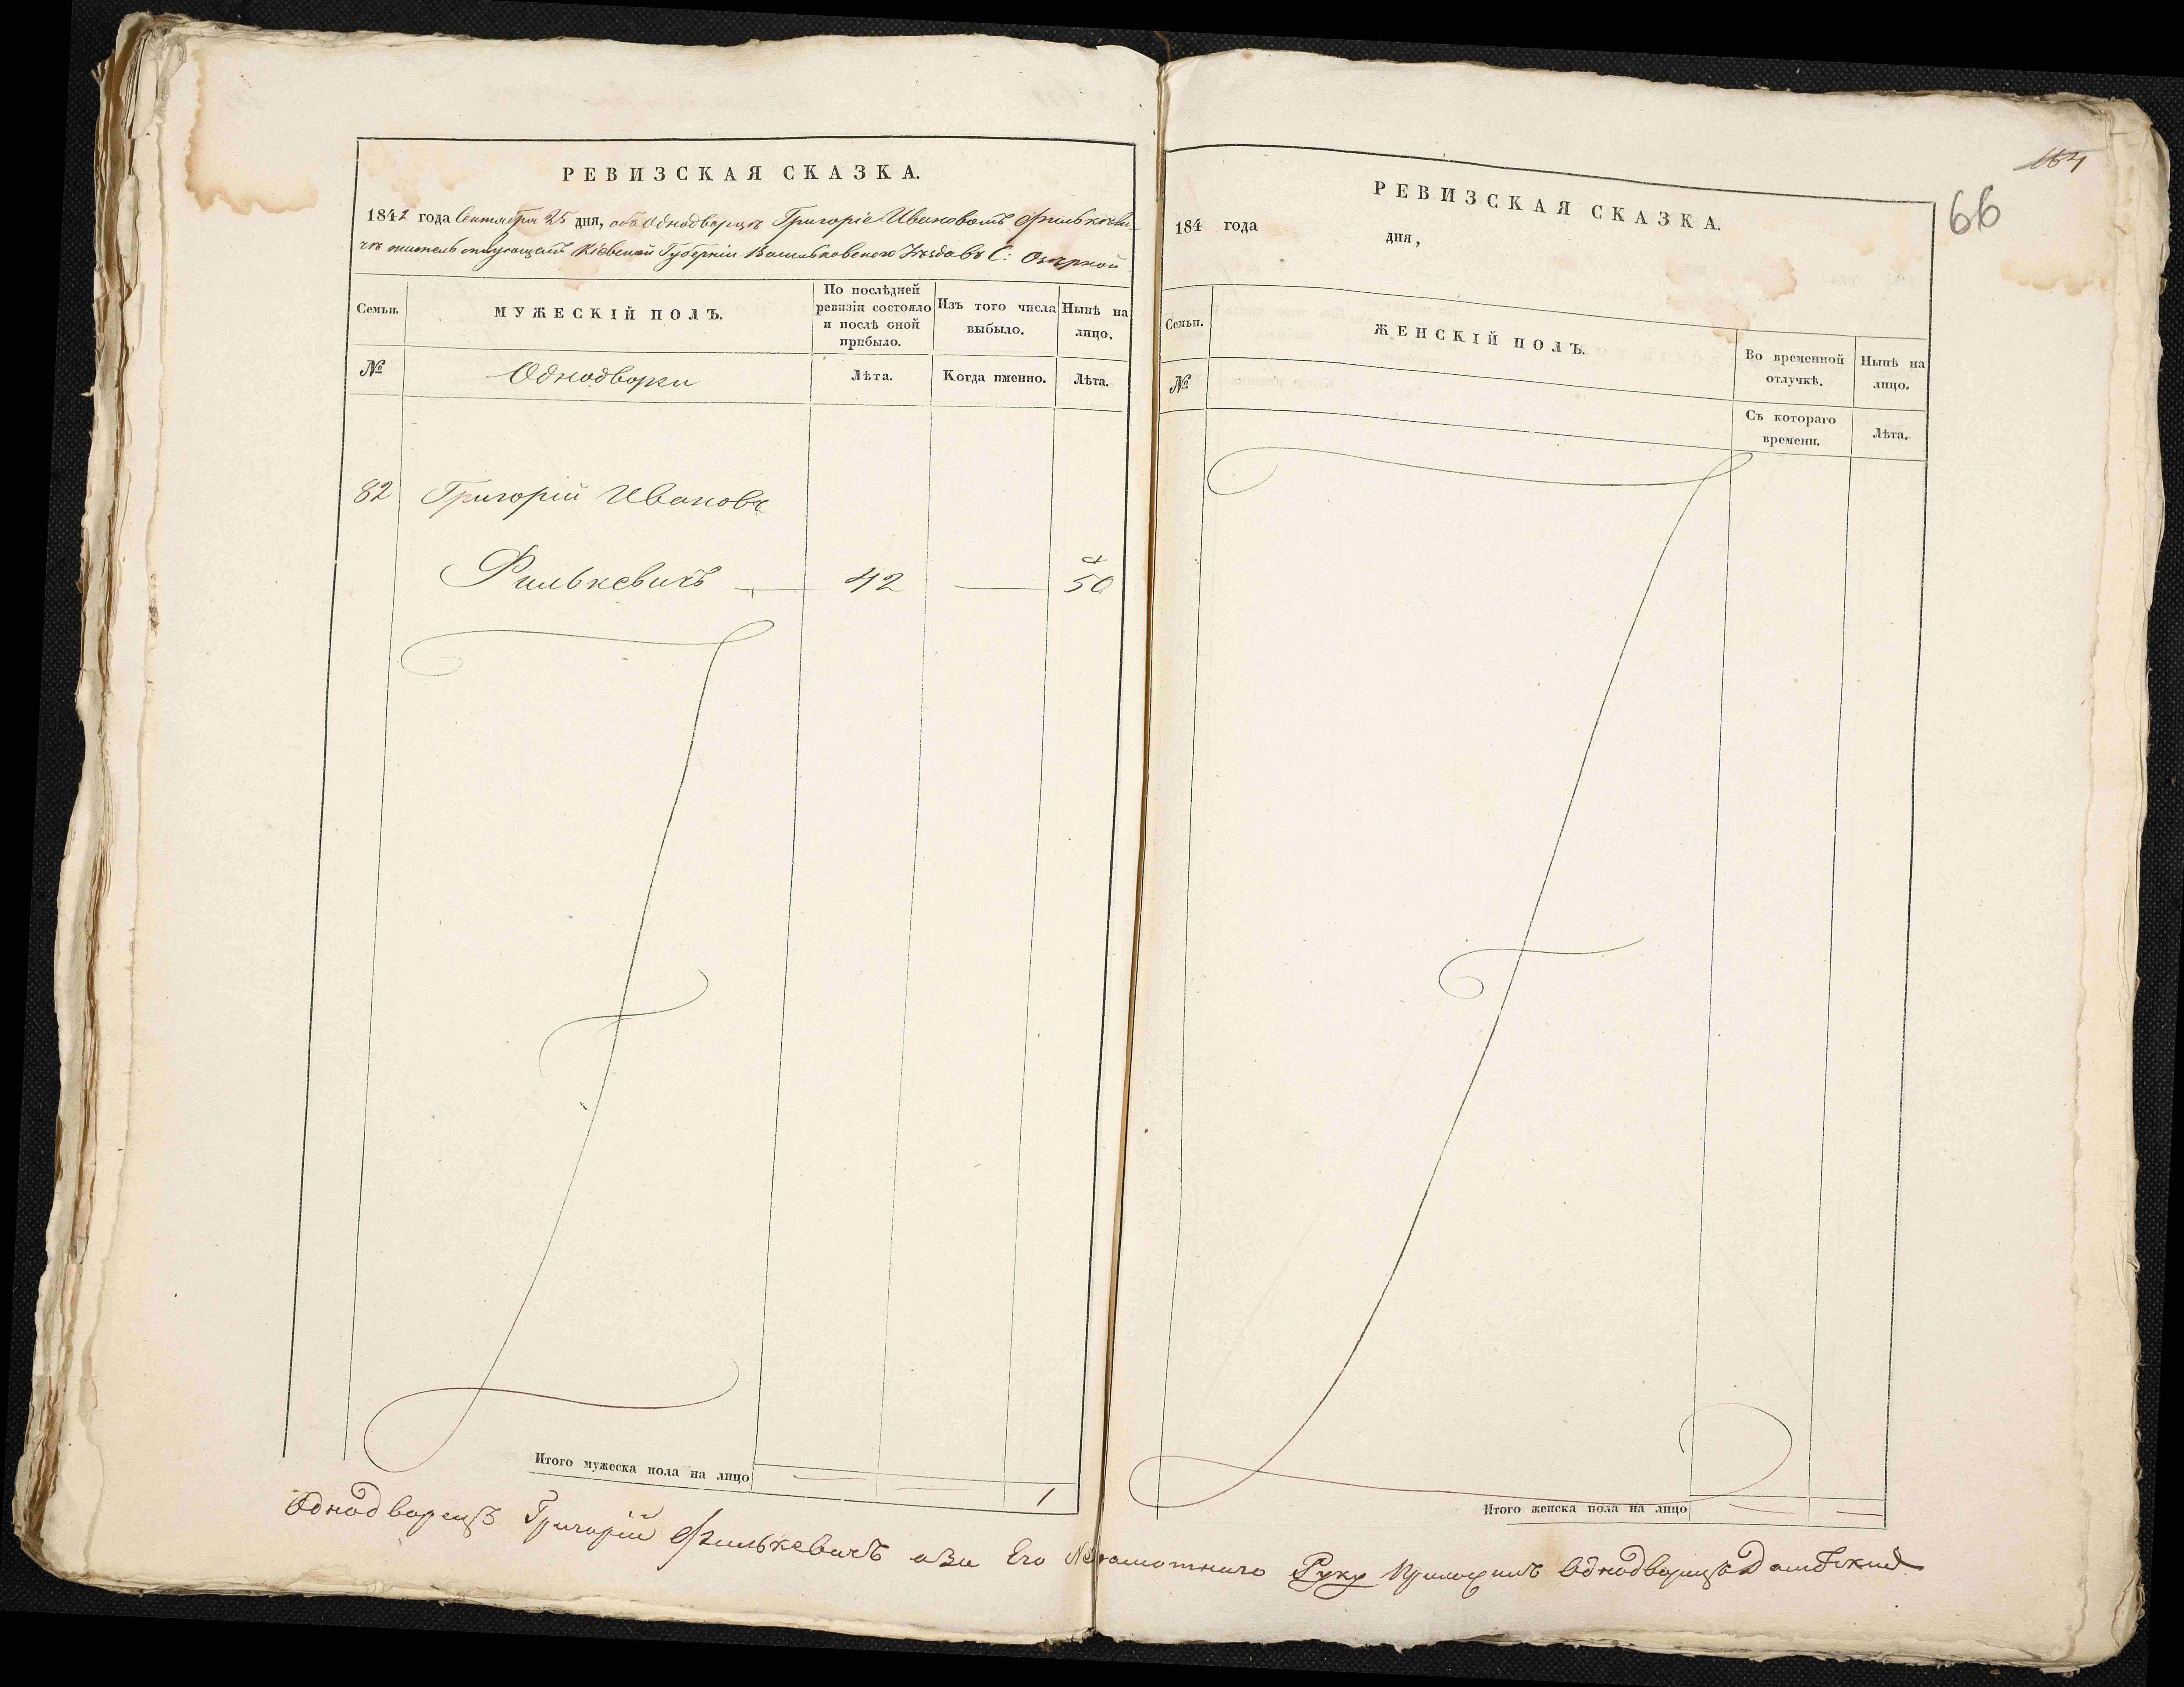 РЕВИЗСКАЯ СКАЗКА.
1842 года Сентября 25 дня, объ Однодворцѣ Григоріе Ивановомъ Филькеви-
чѣ жительствующемъ Кіевской Губерніи Васильковского Уѣзда въ С: Озерной
Семьи.
МУЖЕСКІЙ ПОЛЪ.
По послѣдней ревизіи состояло и послѣ оной прибыло.
Изъ того числа выбыло.
Нынѣ на лицо.
№
Однодворки
Лѣта.
Когда именно.
Лѣта.
82 Григорій Ивановъ
Филькевичъ 42 — 50
Итого мужеска пола на лицо — — 1
164
66
РЕВИЗСКАЯ СКАЗКА.
184 года дня,
Семьи.
ЖЕНСКІЙ ПОЛЪ.
Во временной отлучкѣ.
Нынѣ на лицо.
№
Съ котораго времени.
Лѣта.
Итого женска пола на лицо — —
Однодворецъ Григорій Филькевичъ а За Его Неграмотнаго Руку Приложилъ Однодворецъ